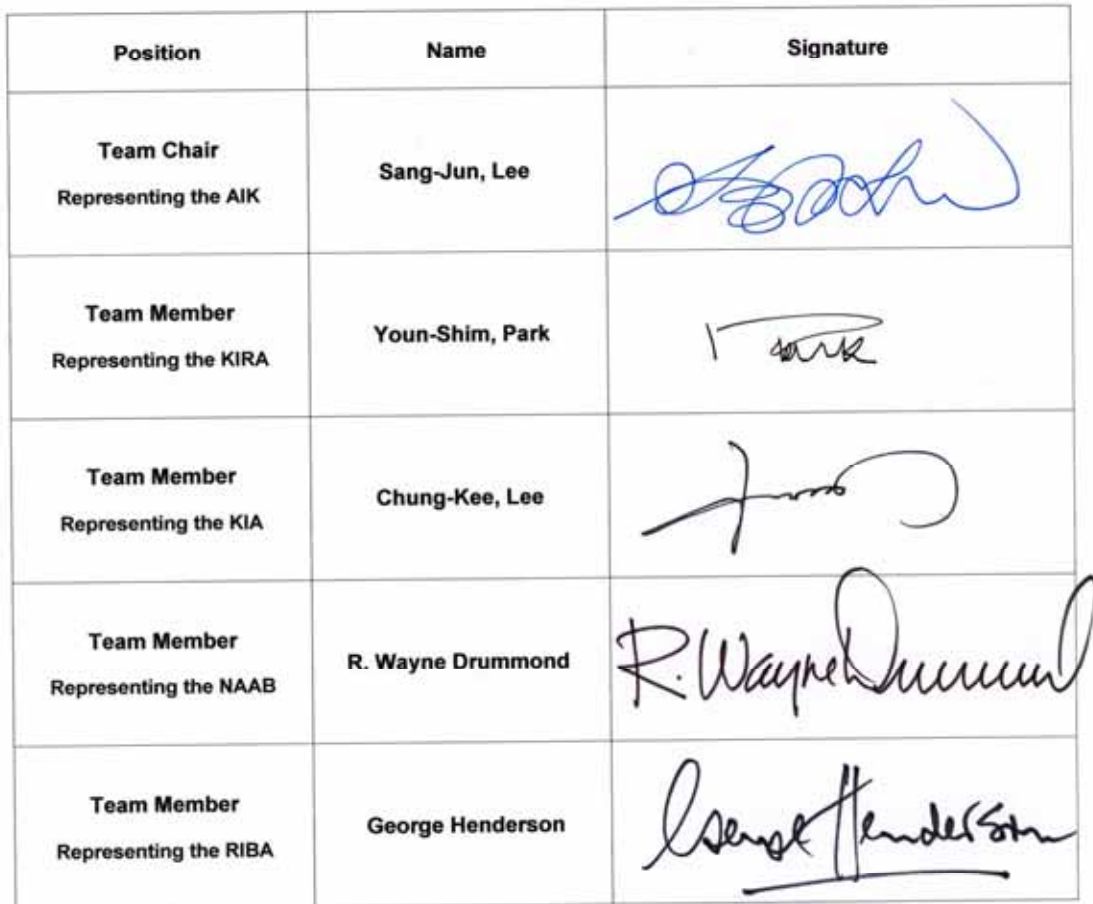 Position Name Signature
Team Chair
Representing the AIK
Sang-Jun, Lee
Team Member
Representing the KIRA
Youn-Shim, Park
Park
Team Member
Representing the KIA
Chung-Kee, Lee
Team Member
Representing the NAAB
R. Wayne Drummond
R. Wayne Drummond
Team Member
Representing the RIBA
George Henderson
George Henderson